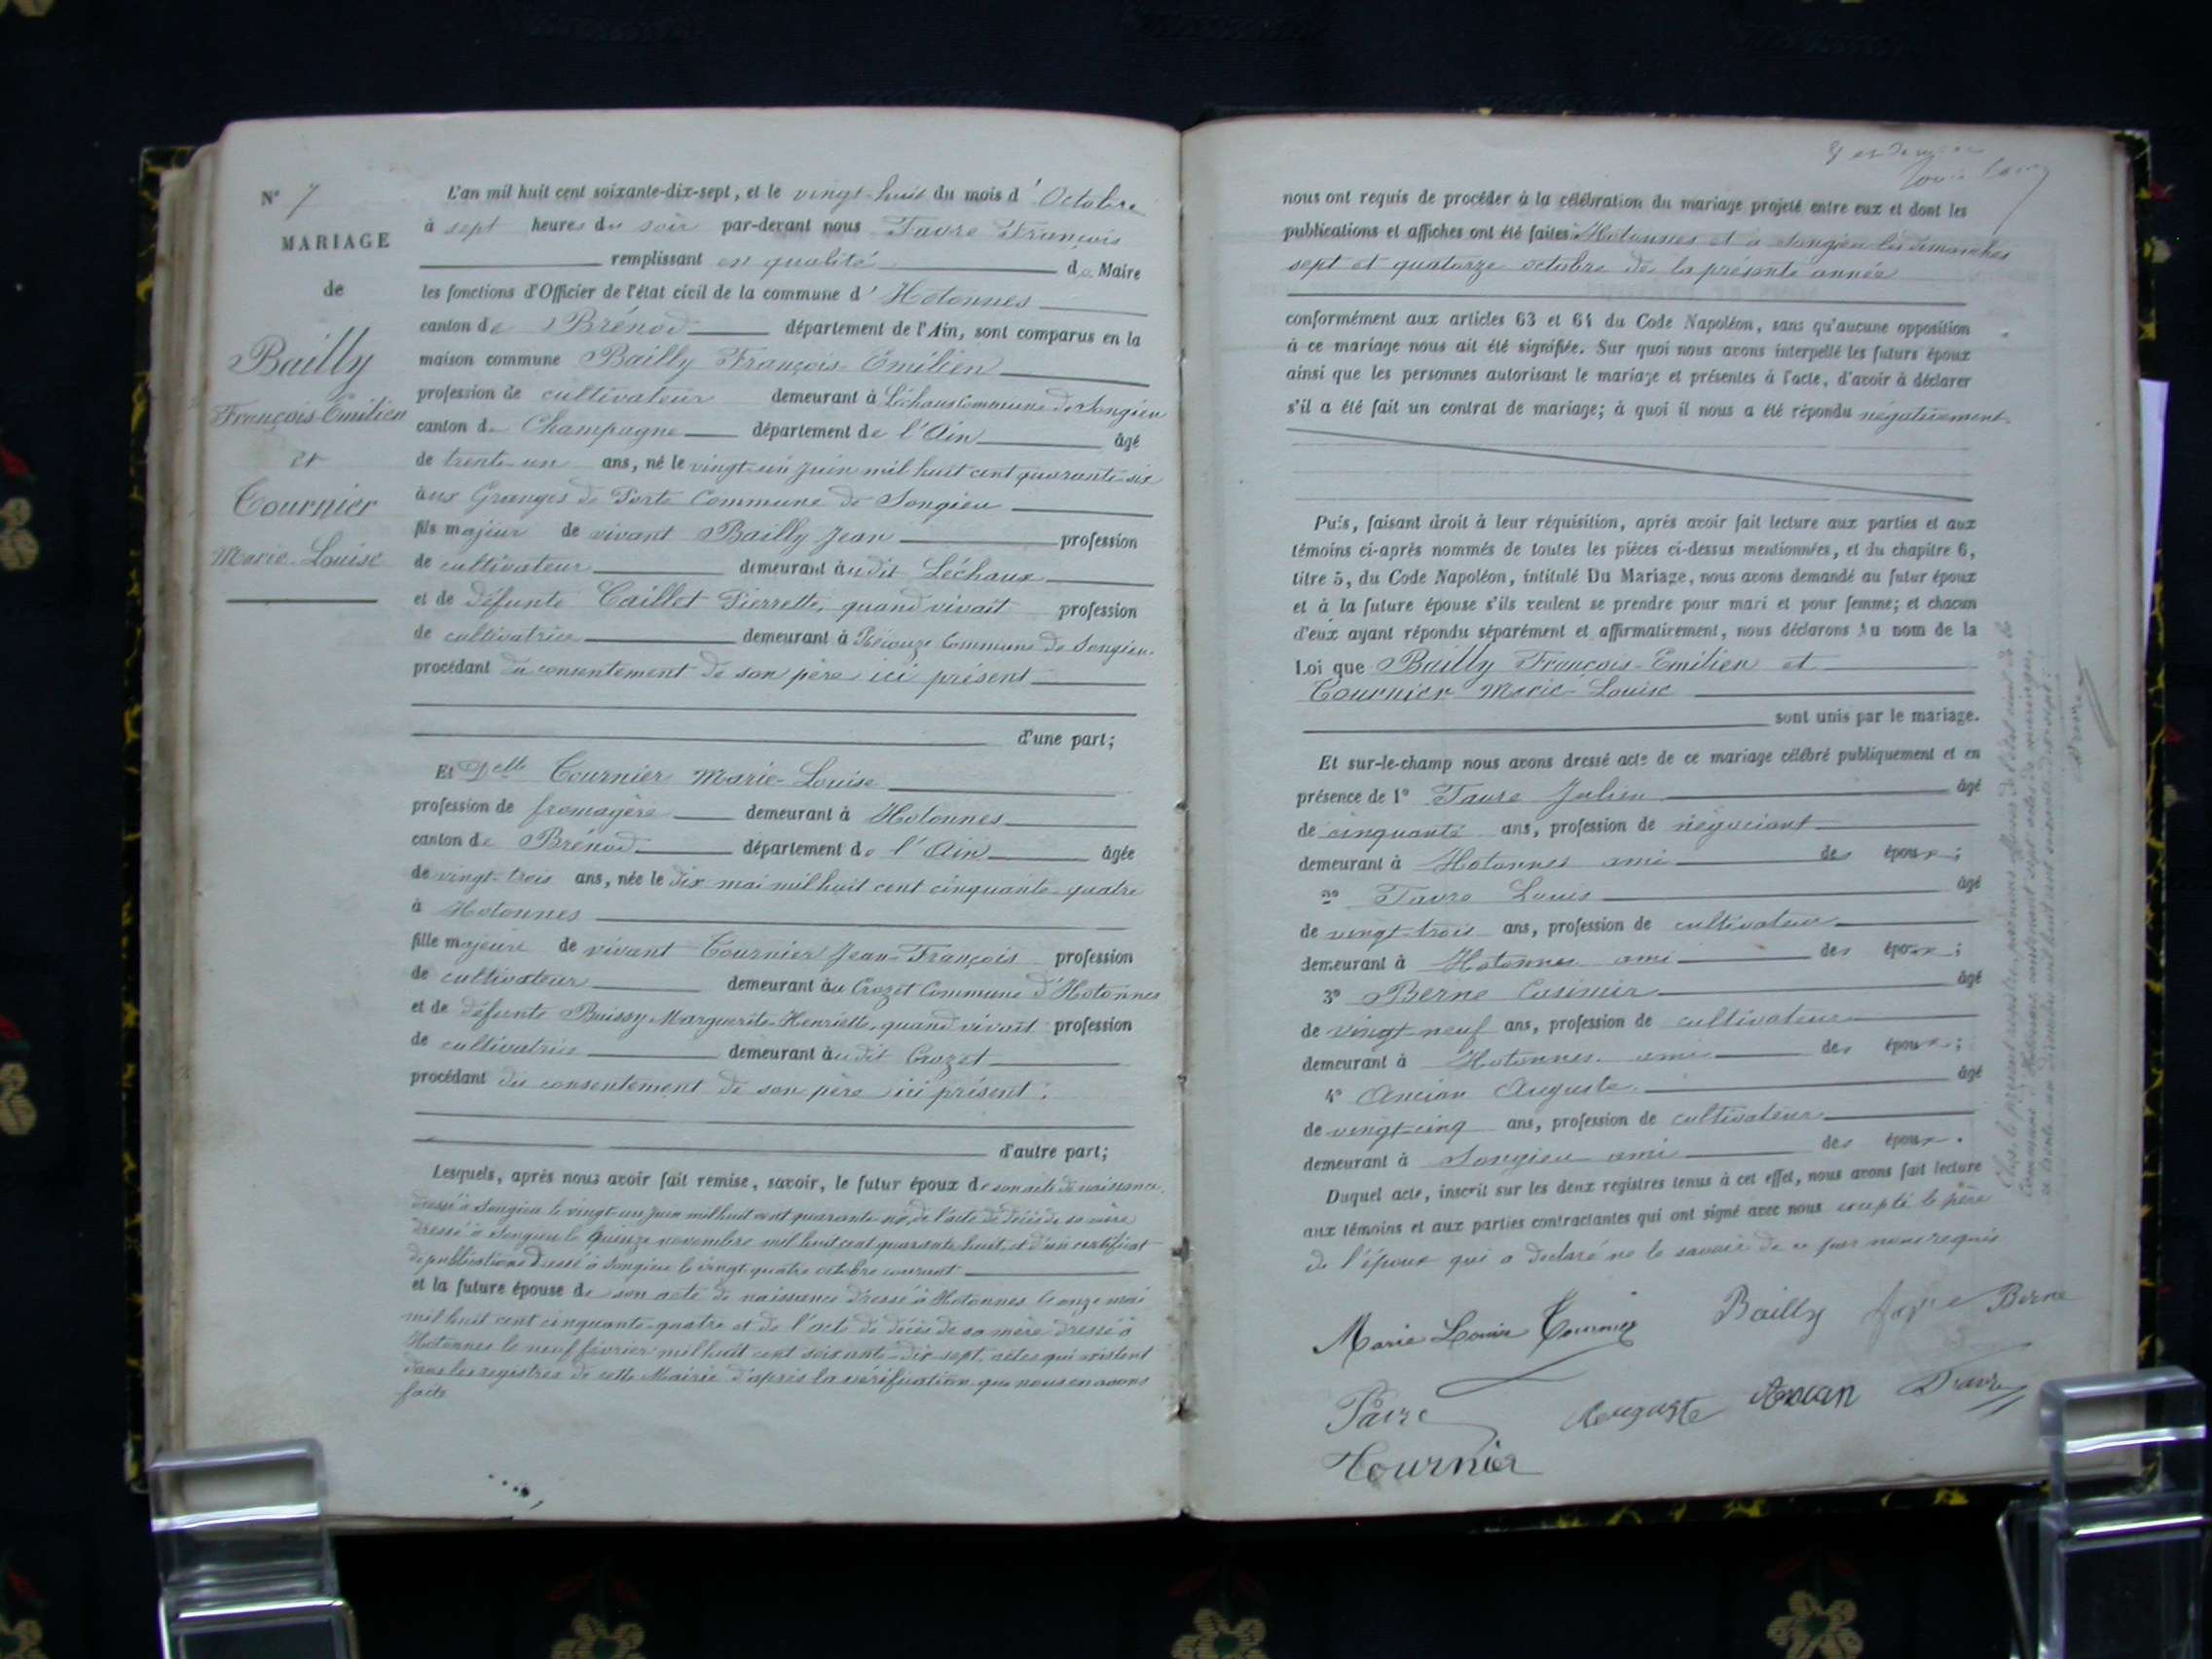 N° 7
MARIAGE
de
Bailly
François-Emilien
et
Tournier
Marie-Louise
L'an mil huit cent soixante-dix-sept, et le vingt-huit du mois d'Octobre
à sept heures du soir par-devant nous Favre François
remplissant en qualité de Maire
les fonctions d'Officier de l'état civil de la commune d'Hotonnes
canton de Brénod département de l'Ain, sont comparus en la
maison commune Bailly François-Emilien
profession de cultivateur demeurant à Léchaux Commune de Songieu
canton de Champagne département de l'Ain âgé
de trente-un ans, né le vingt-un juin mil huit cent quarante-six
aux Granges de Porte Commune de Songieu
fils majeur de vivant Bailly Jean profession
de cultivateur demeurant audit Léchaux
et de défunte Caillet Pierrette, quand vivait profession
de cultivatrice demeurant à Commune de Songieu.
procédant du consentement de son père ici présent
d'une part;
Et Delle Tournier Marie-Louise
profession de fromagère demeurant à Hotonnes
canton de Brénod département de l'Ain âgée
de vingt-trois ans, née le dix mai mil huit cent cinquante-quatre
à Hotonnes
fille majeure de vivant Tournier Jean-François profession
de cultivateur demeurant au Crozet Commune d'Hotonnes
et de défunte Buissy Marguerite-Henriette, quand vivait profession
de cultivatrice demeurant audit Crozet
procédant du consentement de son père ici présent;
d'autre part;
Lesquels, après nous avoir fait remise, savoir, le futur époux de son acte de naissance
dressé à Songieu le vingt-un juin mil huit cent quarante-six, de l'acte de décès de sa mère
dressé à Songieu le quinze novembre mil huit cent quarante-huit, et d'un certificat
de publications dressé à Songieu le vingt-quatre octobre courant
et la future épouse de son acte de naissance dressé à Hotonnes le onze mai
mil huit cent cinquante-quatre et de l'acte de décès de sa mère dressé à
Hotonnes le neuf février mil huit cent soixante-dix-sept, actes qui existent
dans les registres de cette Mairie d'après la vérification que nous en avons
faite
nous ont requis de procéder à la célébration du mariage projeté entre eux et dont les
publications et affiches ont été faites à Hotonnes et à Songieu les dimanches
sept et quatorze octobre de la présente année
conformément aux articles 63 et 64 du Code Napoléon, sans qu'aucune opposition
à ce mariage nous ait été signifiée. Sur quoi nous avons interpellé les futurs époux
ainsi que les personnes autorisant le mariage et présentes à l'acte, d'avoir à déclarer
s'il a été fait un contrat de mariage; à quoi il nous a été répondu négativement.
Puis, faisant droit à leur réquisition, après avoir fait lecture aux parties et aux
témoins ci-après nommés de toutes les pièces ci-dessus mentionnées, et du chapitre 6,
titre 5, du Code Napoléon, intitulé Du Mariage, nous avons demandé au futur époux
et à la future épouse s'ils veulent se prendre pour mari et pour femme; et chacun
d'eux ayant répondu séparément et affirmativement, nous déclarons Au nom de la
Loi que Bailly François-Emilien et
Tournier Marie-Louise
sont unis par le mariage.
Et sur-le-champ nous avons dressé acte de ce mariage célébré publiquement et en
présence de 1° Favre Julien âgé
de cinquante ans, profession de négociant
demeurant à Hotonnes ami des époux;
2° Favre Louis âgé
de vingt-trois ans, profession de cultivateur
demeurant à Hotonnes ami des époux;
3° Berne Casimir âgé
de vingt-neuf ans, profession de cultivateur
demeurant à Hotonnes ami des époux;
4° Ancian Auguste âgé
de vingt-cinq ans, profession de cultivateur
demeurant à Songieu ami des époux.
Duquel acte, inscrit sur les deux registres tenus à cet effet, nous avons fait lecture
aux témoins et aux parties contractantes qui ont signé avec nous excepté le père
de l'époux qui a déclaré ne le savoir de ce par nous requis
Marie Louise Tournier Bailly Favre Berne
Favre Auguste Ancian Favre
Tournier